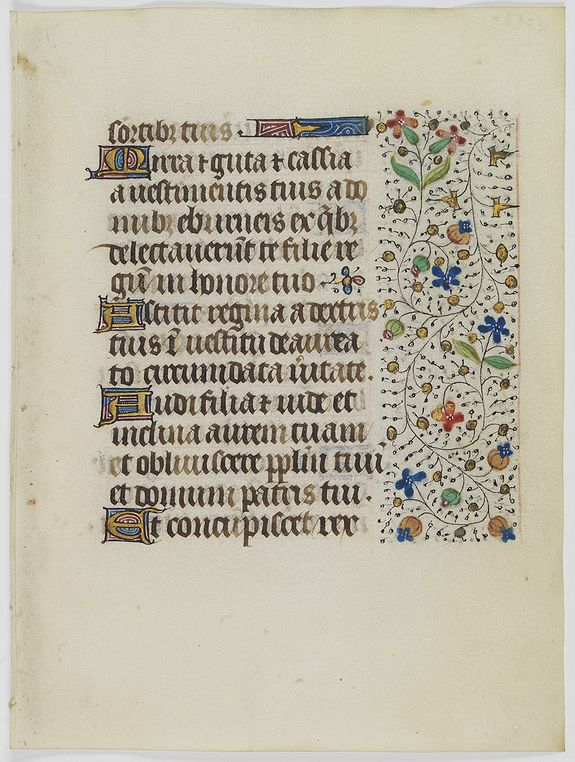 sortibꝫ tuis .
Mirra ⁊ guta ⁊ cassia
a uestimentis tuis a do
mibꝫ eburneis ex q̃bꝫ
delectauerũt te filie re
gũ in honore tuo .
Astitit regina a dextris
tuis ĩ uestitu deaurea
to circumdata ũitate .
Audi filia ⁊ uide et
inclina aurem tuam
et obliuiscere pplm̃ tuũ
et domum patris tui .
Et concupiscet rex